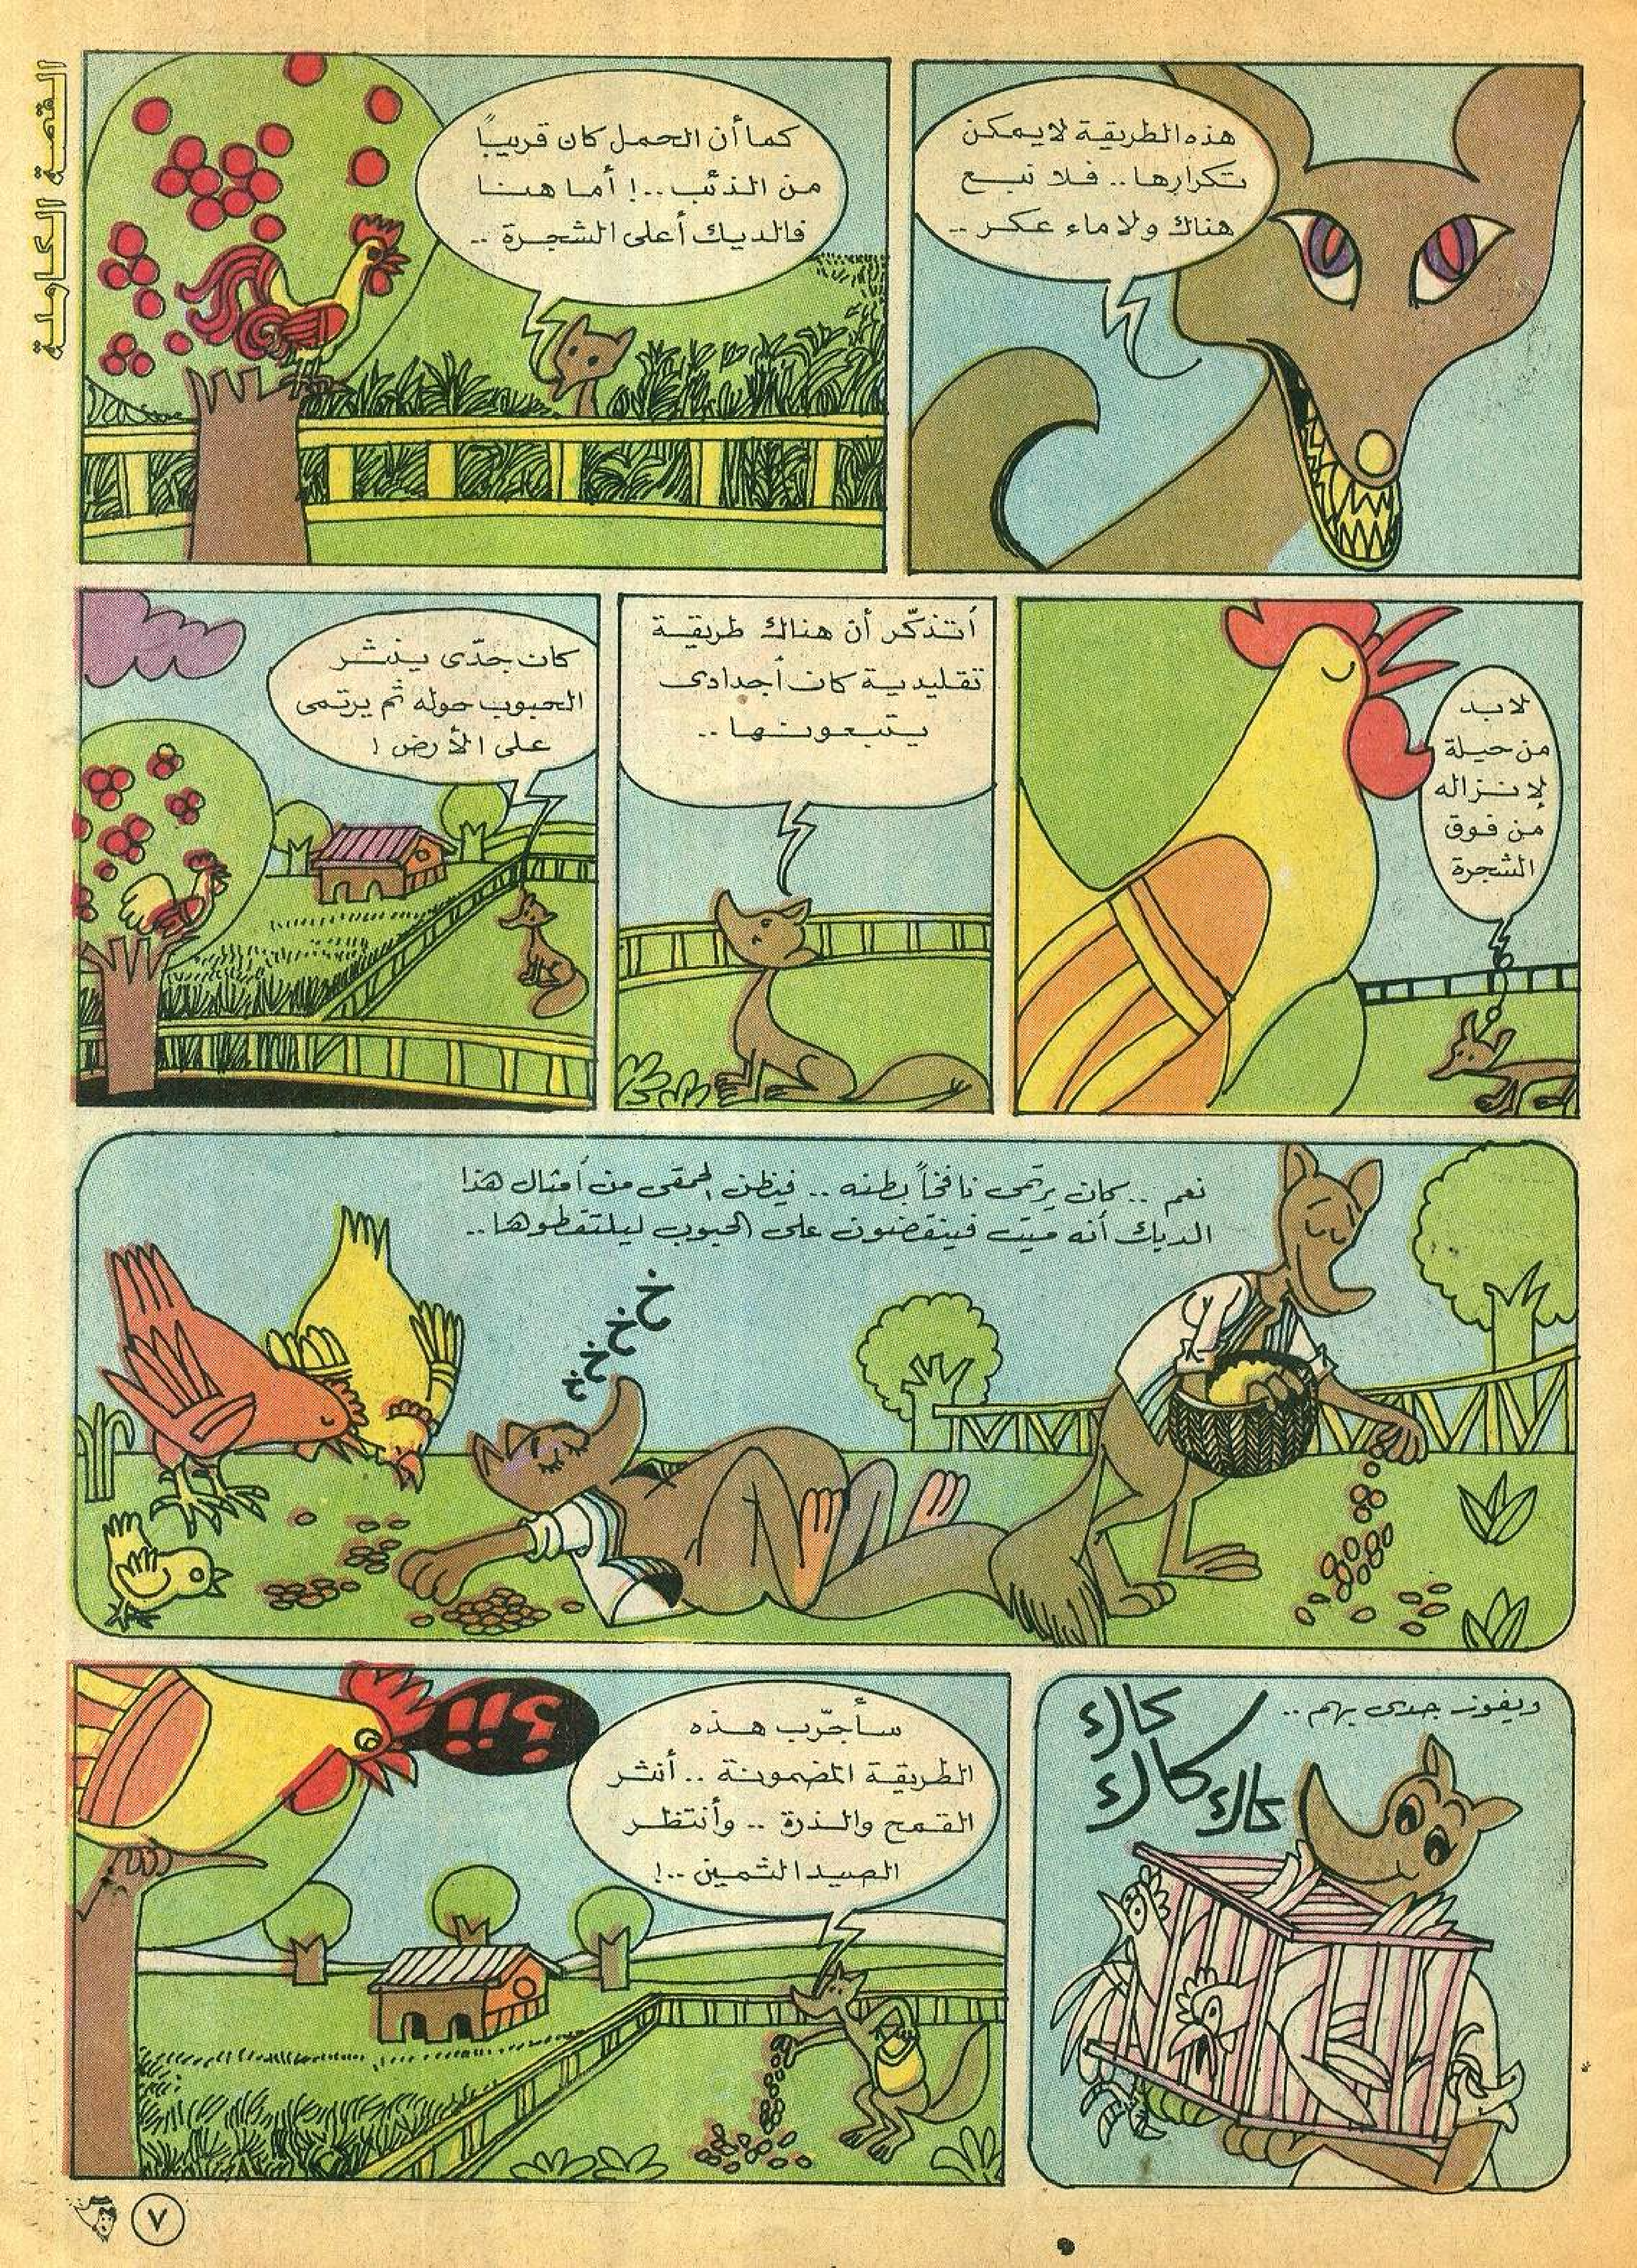 القصة الكاملة
هذه الطريقة لا يمكن
تكرارها.. فلا نبع
هناك ولا ماء عكر..
كما أن الحمل كان قريباً
من الذئب..! أما هنا
فالديك أعلى الشجرة..
لابد
من حيلة
لإنزاله
من فوق
الشجرة
أتذكّر أن هناك طريقة
تقليدية كان أجدادى
يتبعونها..
كان جدّى ينثر
الحبوب حوله ثم يرتمى
على الأرض!
نعم.. كان يرتمى نافخاً بطنه.. فيظن الحمقى من أمثال هذا
الديك أنه ميت فينقضون على الحبوب ليلتقطوها..
خ
خ
خ
خ
ويفوز جدى بهم..
كاك
كاك
كاك
سأجرّب هذه
الطريقة المضمونة.. أنثر
القمح والذرة.. وأنتظر
الصيد الثمين..!
٧